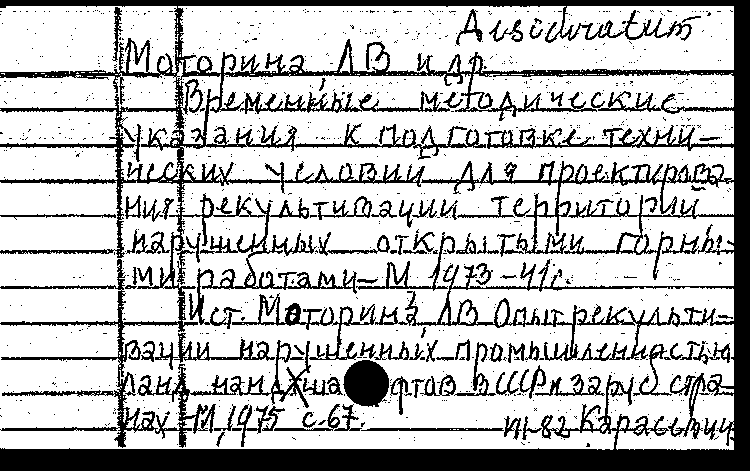 Disideratum
Моторина, ЛВ и др
Временные методические
указания к подготовке техни-
ческих условий для проектирова-
ния рекультивации территорий
нарушенных открытыми горны-
ми работами–М 1973–41с.
Ист. Моторина, ЛВ Опыт рекульти-
вации нарушенных промышленностью
ланд шафтов в СССР и заруб стра-
нах –М, 1975 с.67.
Карасетич